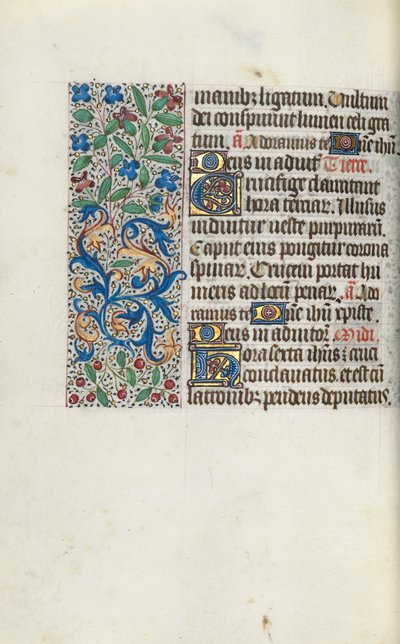 manibus ligatum. Vultum
dei conspuunt lumen celi gra
tum. a. Adoramus te dne ihu
Deus in adiut Tierce.
Crucifige clamitant
hora terciar. Illusus
induitur veste purpurarum
Caput eius pungitur corona
spinar. Crucem portat hu
meris ad locum penar. a. Ado
ramus te dne ihu xpiste.
Deus in adiutor. Midi
Hora sexta ihus e cruci
conclavatus. et est cum
latronibz pendens deputatus.